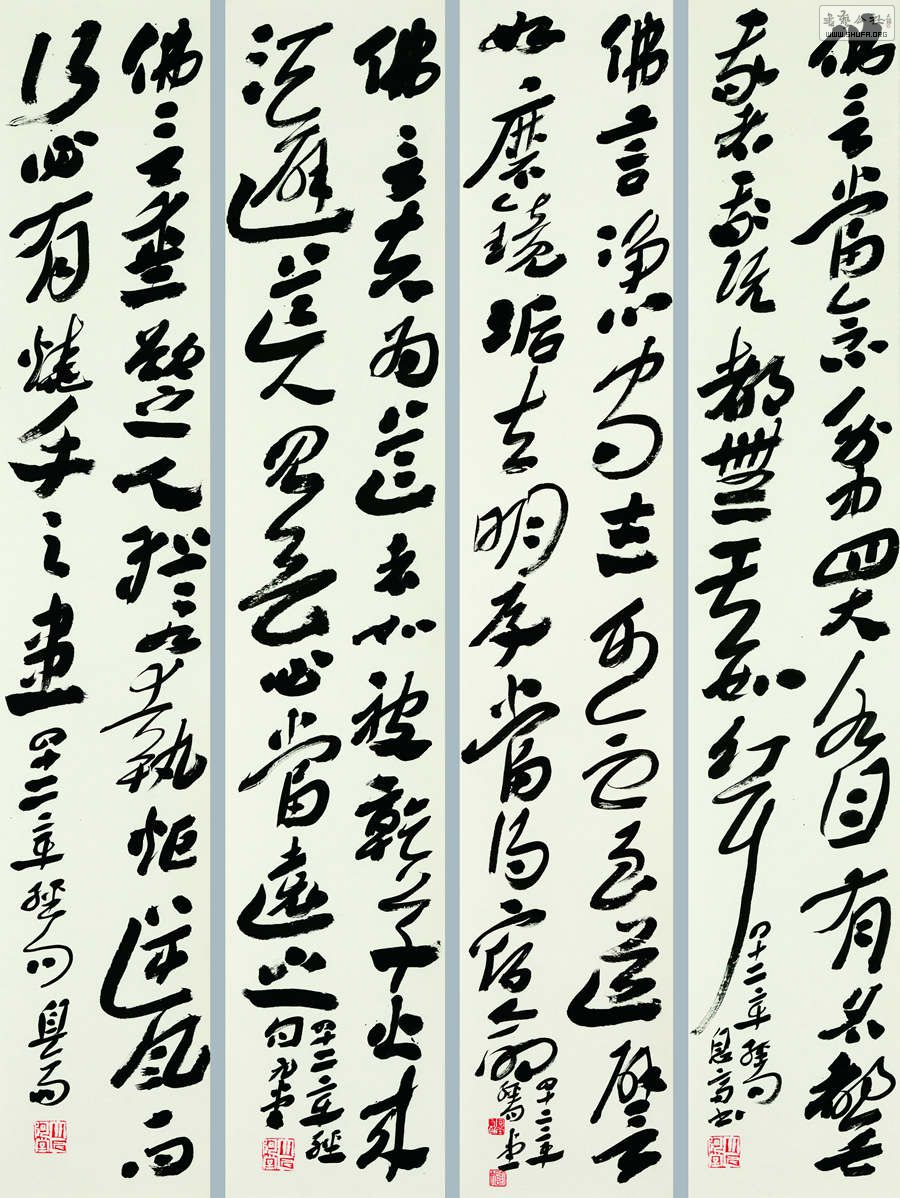 书艺公社
WWW.SHUFA.ORG
佛言當念身中四大各自有名都无
我者我既都無其如幻耳
四十二章經句
佛言淨心守志可會至道譬
如磨鏡垢去明存當得宿命
四十二章
經
佛言夫為道者如被乾草火來
須避道人見欲必當遠之
四十二章經
句
佛言愛欲之人猶如執炬逆風而
行必有燒手之患 四十二章經句